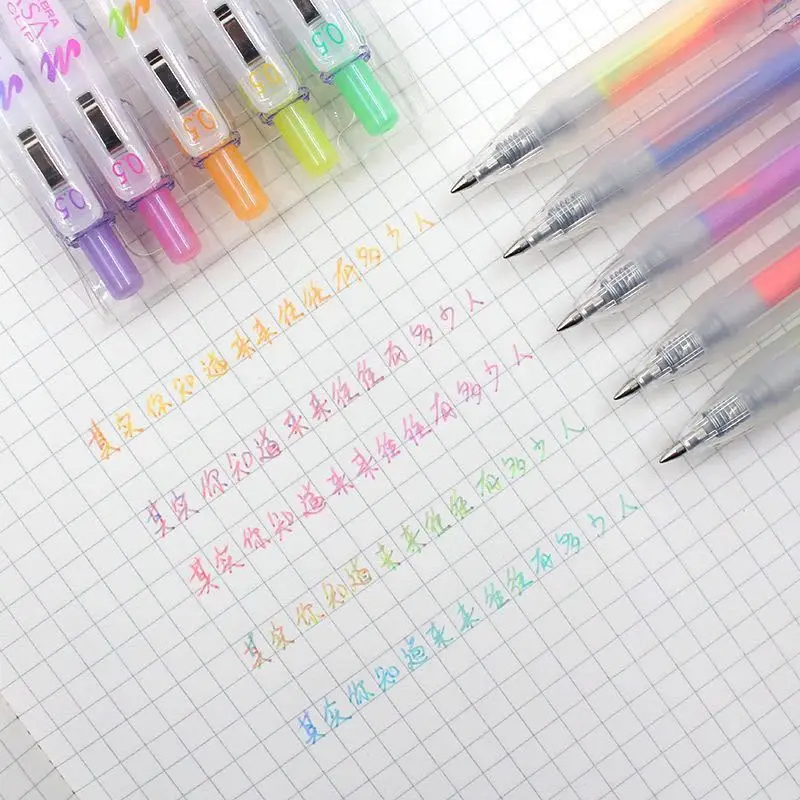 BRA
SA
CLIP
0.5
0.5
0.5
0.5
0.5
其实你知道来来往往有多少人
其实你知道来来往往有多少人
其实你知道来来往往有多少人
其实你知道来来往往有多少人
其实你知道来来往往有多少人